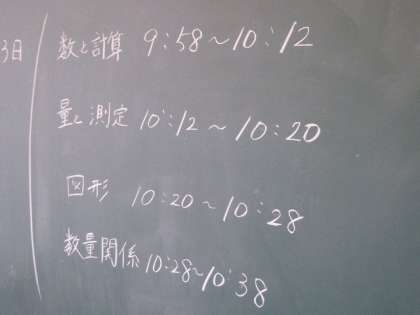 3日
数と計算 9:58～10:12
量と測定 10:12～10:20
図形 10:20～10:28
数量関係 10:28～10:38